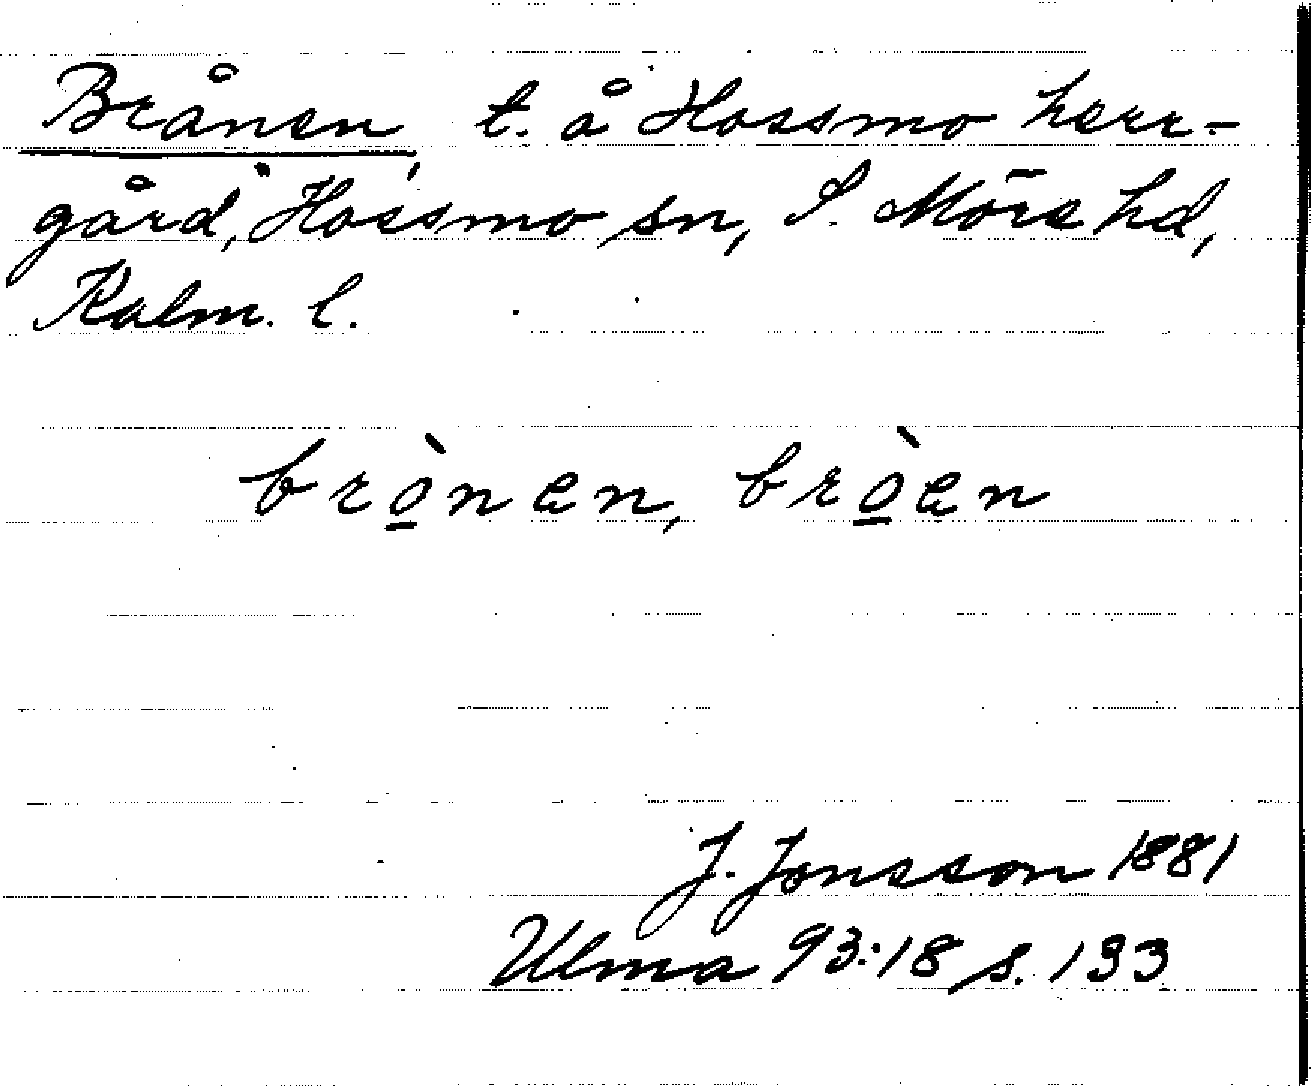 Brånen, t. å Hossmo herr-
gård, Hossmo sn, S. Möre hd,
Kalm. l.
brò̲nen, brò̲en
J. Jonsson 1881
Ulma 93:18 s. 133